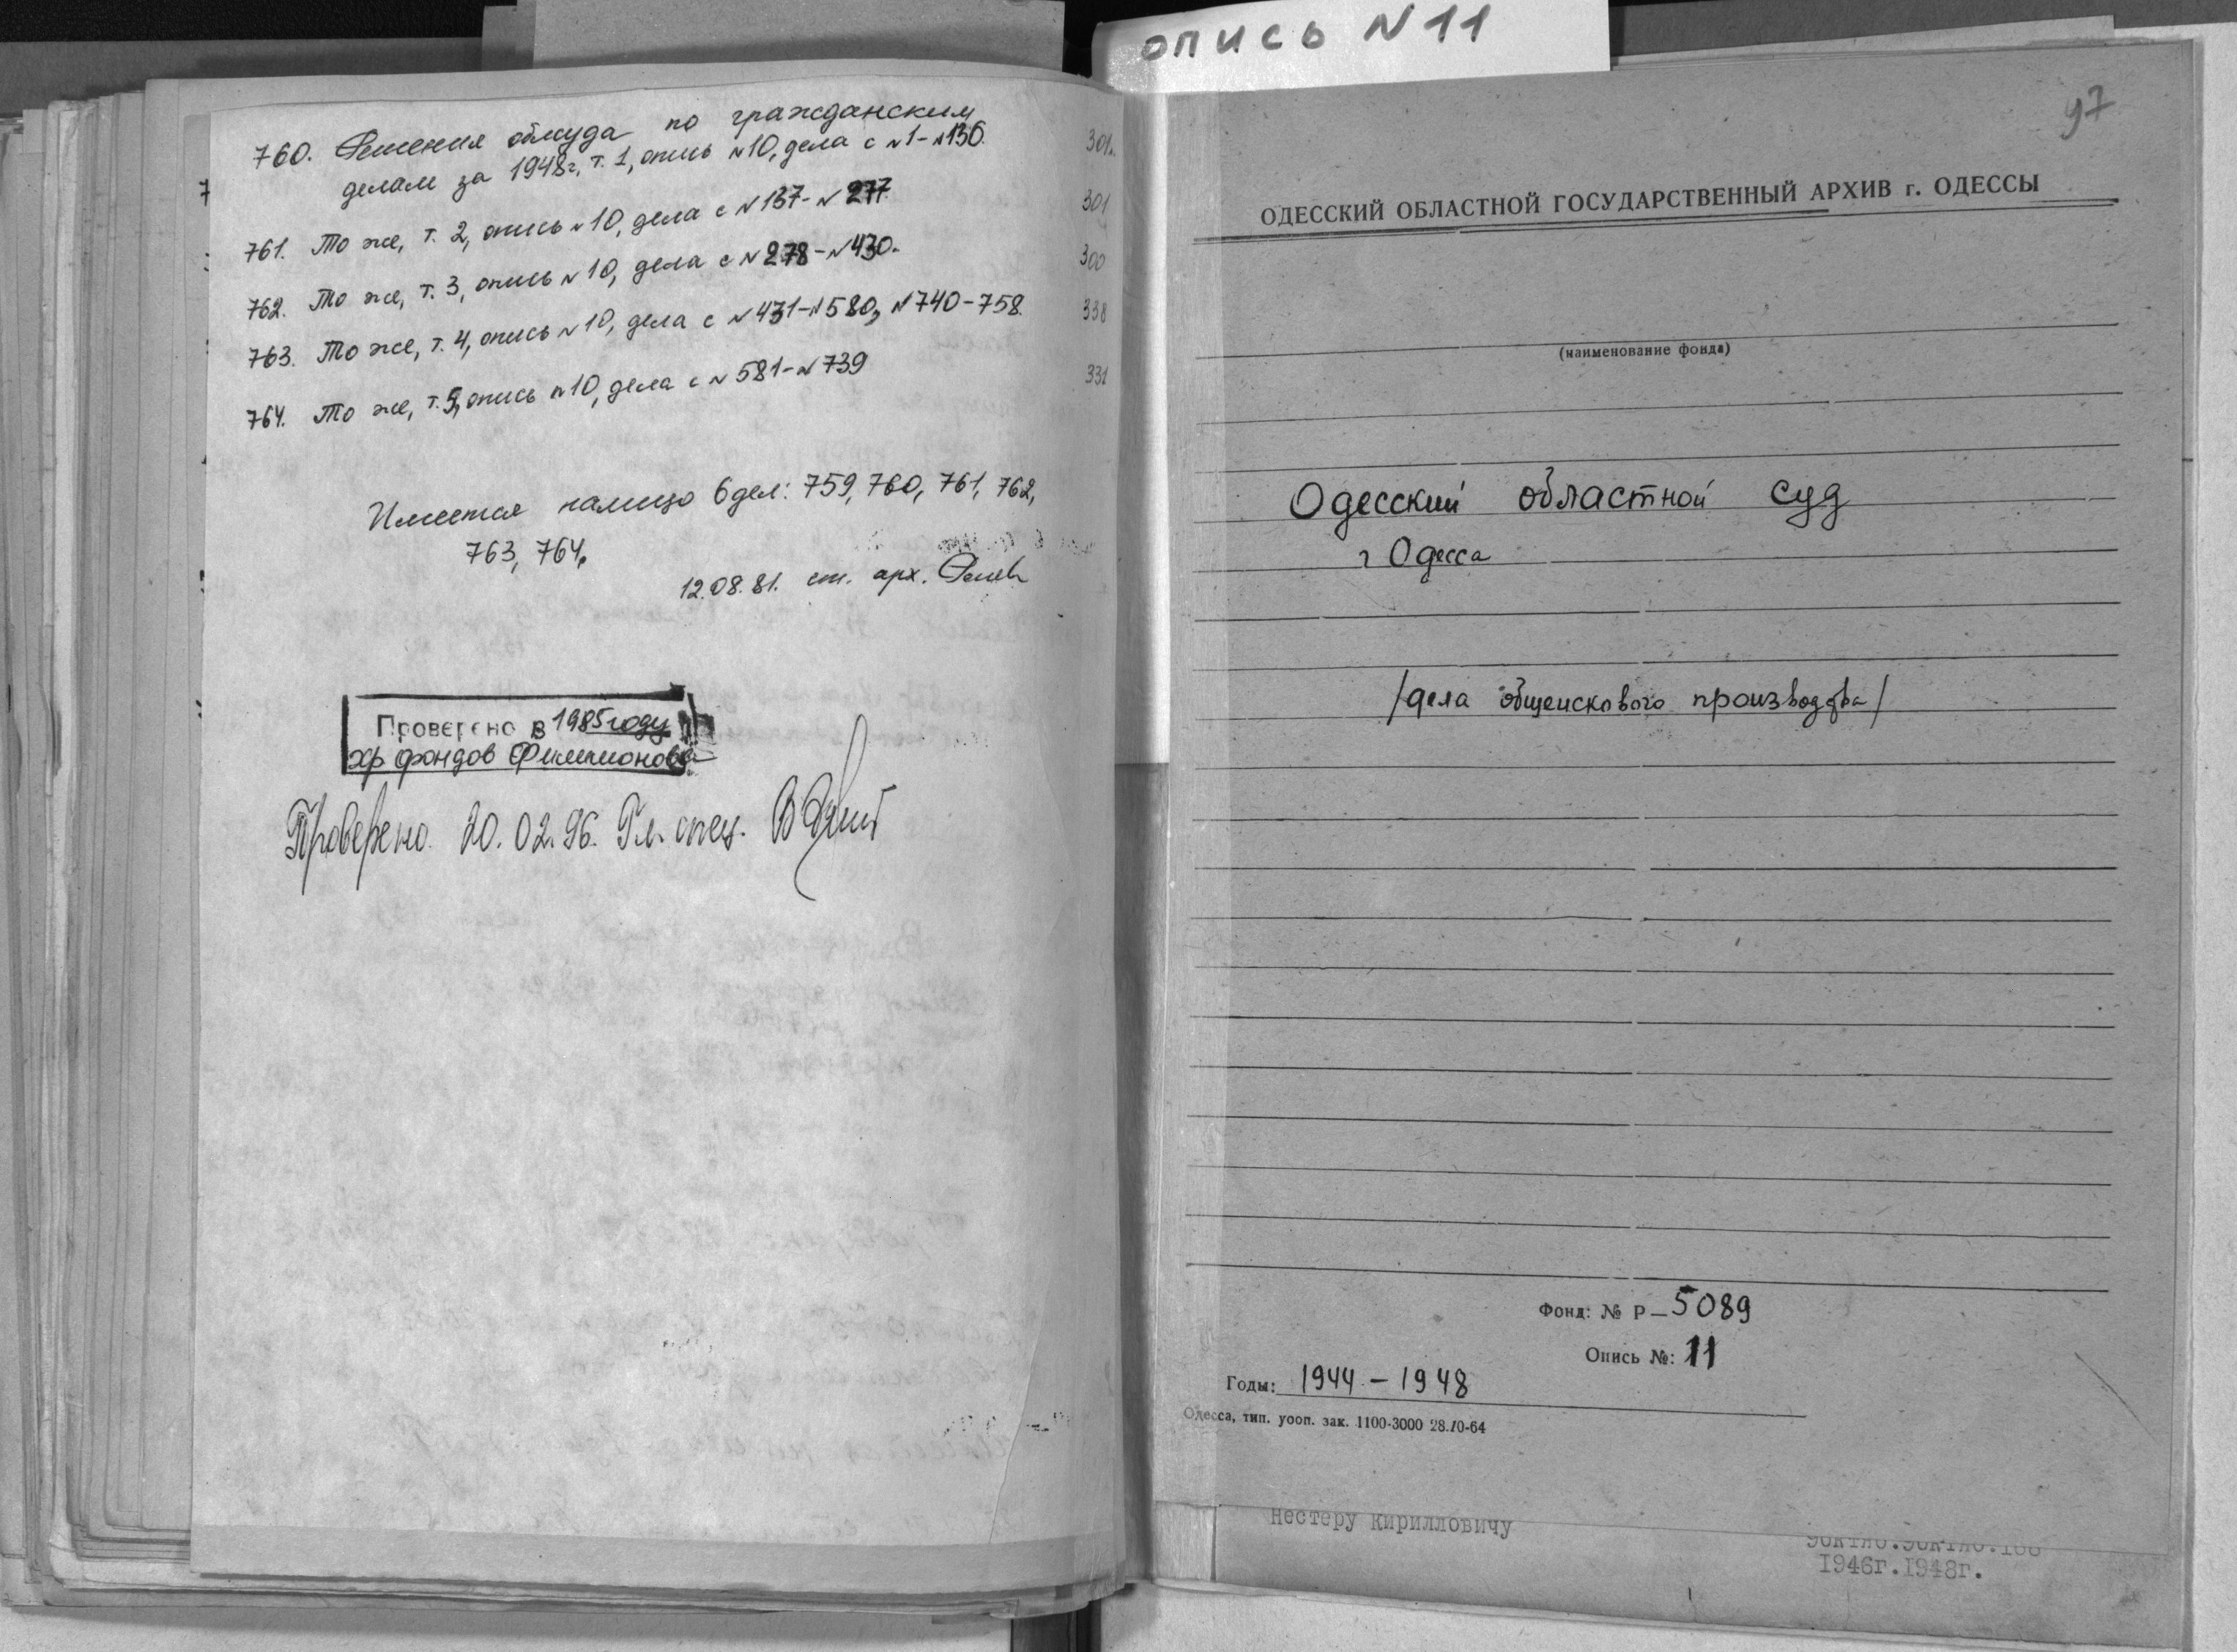 опись N 11
760. Решения облсуда по гражданским 301
делам за 1948г, т. 1, опись N10, дела с N1-N136.
761. То же, т. 2, опись N10, дела с N137-N277 301
762. То же, т. 3, опись N10, дела с N278-N430. 300
763. То же, т. 4, опись N10, дела с N431-N580, N740-758. 338
764. То же, т. 5, опись N10, дела с N581-N739 331
Имеется налицо 6 дел: 759, 760, 761, 762,
763, 764.
12.08.81. ст. арх.
Проверено в 1985 году
хр фондов Филимонова
Проверено 20.02.96. Гл. спец.
97
ОДЕССКИЙ ОБЛАСТНОЙ ГОСУДАРСТВЕННЫЙ АРХИВ г. ОДЕССЫ
(наименование фонда)
Одесский областной суд
г Одесса
/дела общеискового производства/
Фонд: № Р-5089
Опись №: 11
Годы: 1944-1948
Одесса, тип. уооп. зак. 1100-3000 28.10-64
Нестеру Кирилловичу
1946г.1948г.